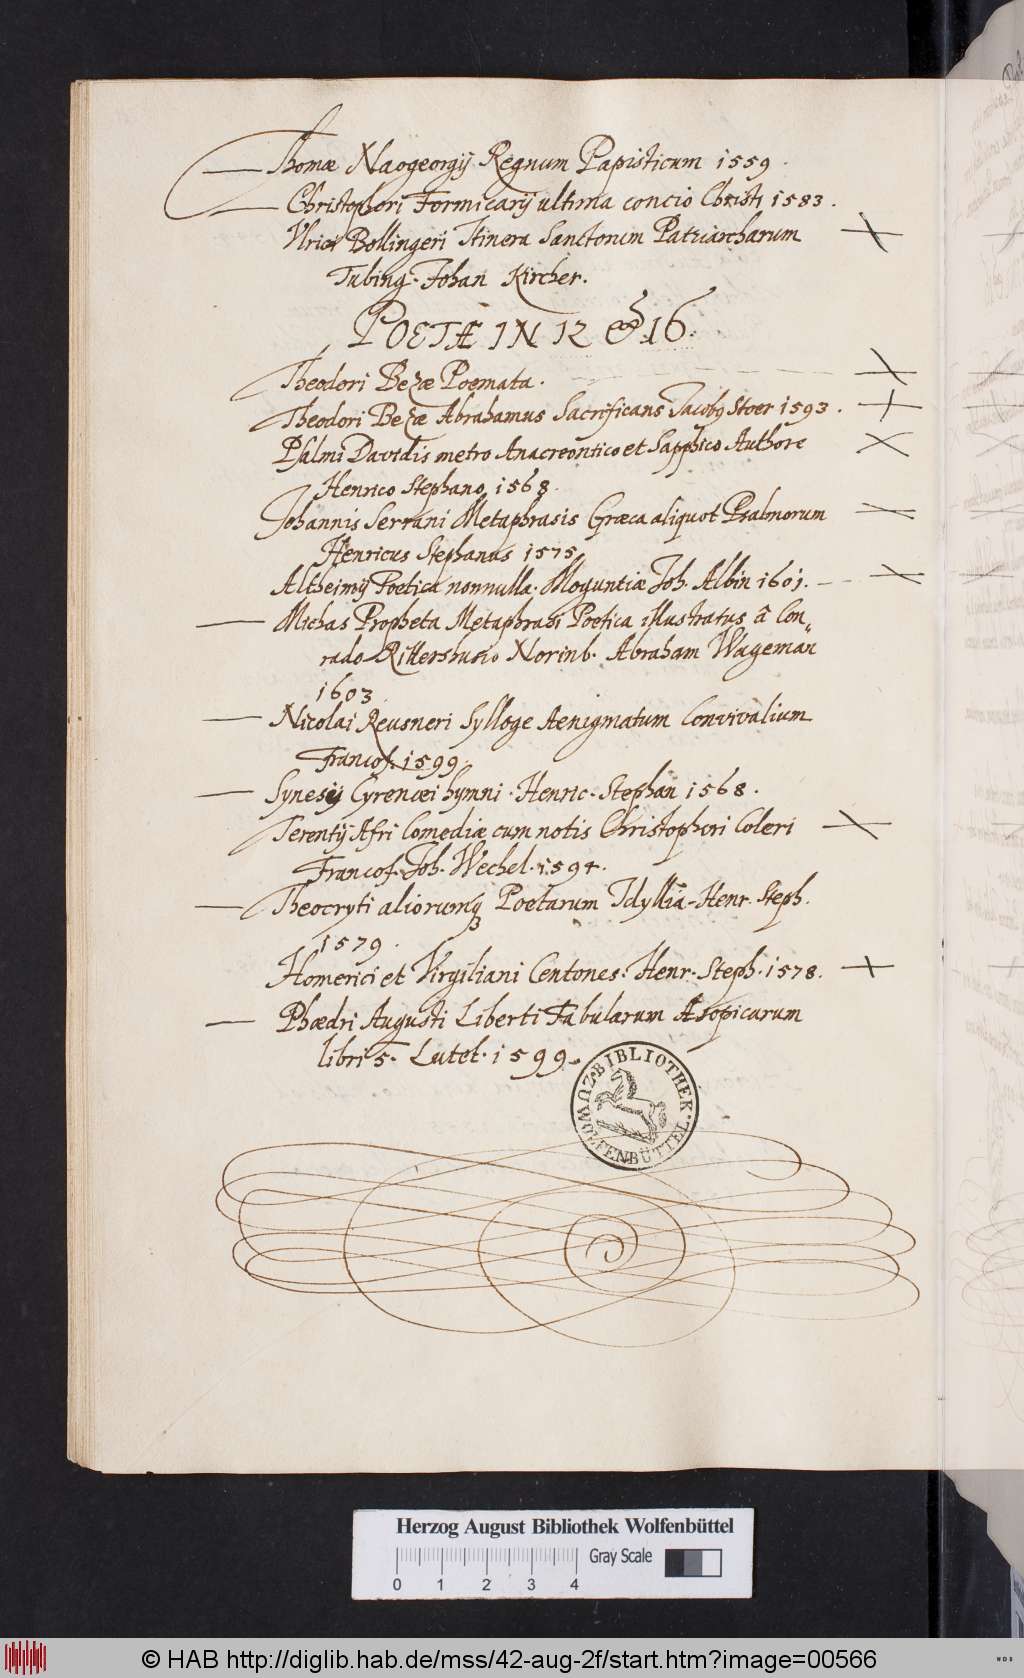 Thomæ Naogeorgij Regnum Papisticum 1559.
Christophori Formicarij ultima concio Christi 1583.
Ulrici Bollingeri Itinera Sanctorum Patriarcharum
Tubing. Johan Kircher.
POETÆ IN 12 & 16.
Theodori Bezæ Poemata.
Theodori Bezæ Abrahamus Sacrificans Jacobus Stoer 1593.
Psalmi Davidis metro Anacreontico et Sapphico Authore
Henrico Stephano 1568.
Johannis Serrani Metaphrasis Græca aliquot Psalmorum
Henricus Stephanus 1575.
Altheimij Poetica nonnulla. Moguntiæ Joh. Albin 1601.
Michas Propheta Metaphrasi Poetica illustratus â Con„
rado Rittershusio Norinb. Abraham Wageman
1603
Nicolai Reusneri Sylloge Aenigmatum Convivalium
Francof. 1599.
Synesij Cyrenæi hymni. Henric. Stephan 1568.
Terentij Afri Comediæ cum notis Christophori Coleri
Francof. Joh. Wechel. 1594.
Theocryti aliorumq3 Poetarum Idyllia. Henr. Steph.
1579.
Homerici et Virgiliani Centones. Henr. Steph. 1578.
Phædri Augusti Liberti Fabularum Æsopicarum
libri 5. Lutet. 1599.
BIBLIOTHEK ZU WOLFENBÜTTEL
Herzog August Bibliothek Wolfenbüttel
Gray Scale
0 1 2 3 4
© HAB http://diglib.hab.de/mss/42-aug-2f/start.htm?image=00566